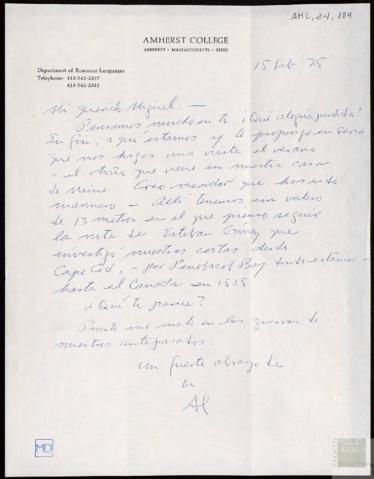 AMD, 24, 184
AMHERST COLLEGE
AMHERST · MASSACHUSETTS · 01002
Department of Romance Languages
Telephone: 413-542-2317
413-542-2342
15 Feb 75
Mi querido Miguel: —
Pensamos mucho en ti ¡Qué alegría perdida!
En fin, aquí estamos y te propongo en serio
que nos hagas una visita el verano
o el otoño que viene en nuestra casa
de Maine. Creo recordar que has sido
marinero — Allí tenemos un velero
de 13 metros en el que pienso seguir
la ruta de Esteban Gómez que
investigó nuestras costas desde
Cape Cod, — por Penobscot Bay donde estamos —
hasta el Canada en 1525
¿Qué te parece?
Pronto me meto en las guerras de
nuestros antepasados.
Un fuerte abrazo de
Al
MD